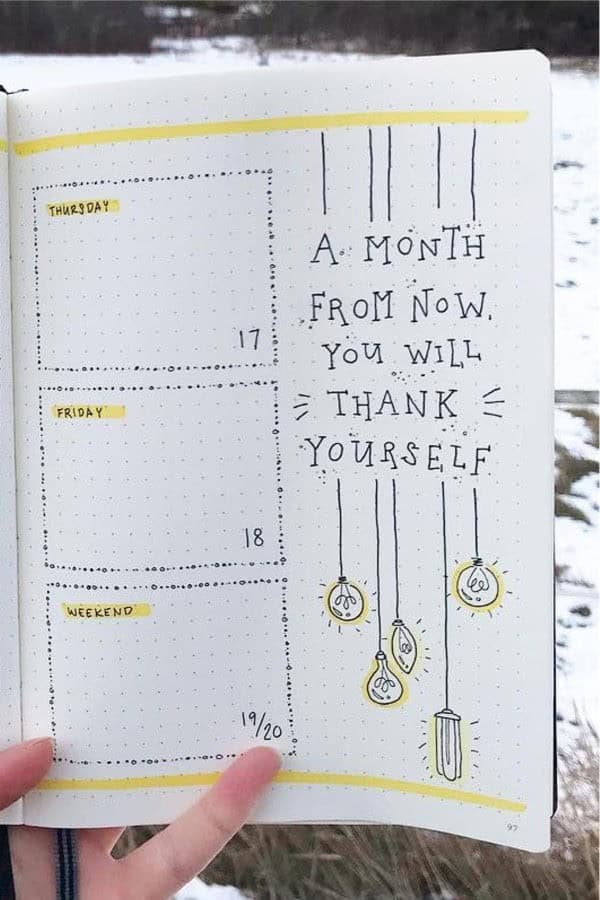 THURSDAY
17
FRIDAY
18
WEEKEND
19/20
A MONTH
FROM NOW,
YOU WILL
THANK
YOURSELF
97